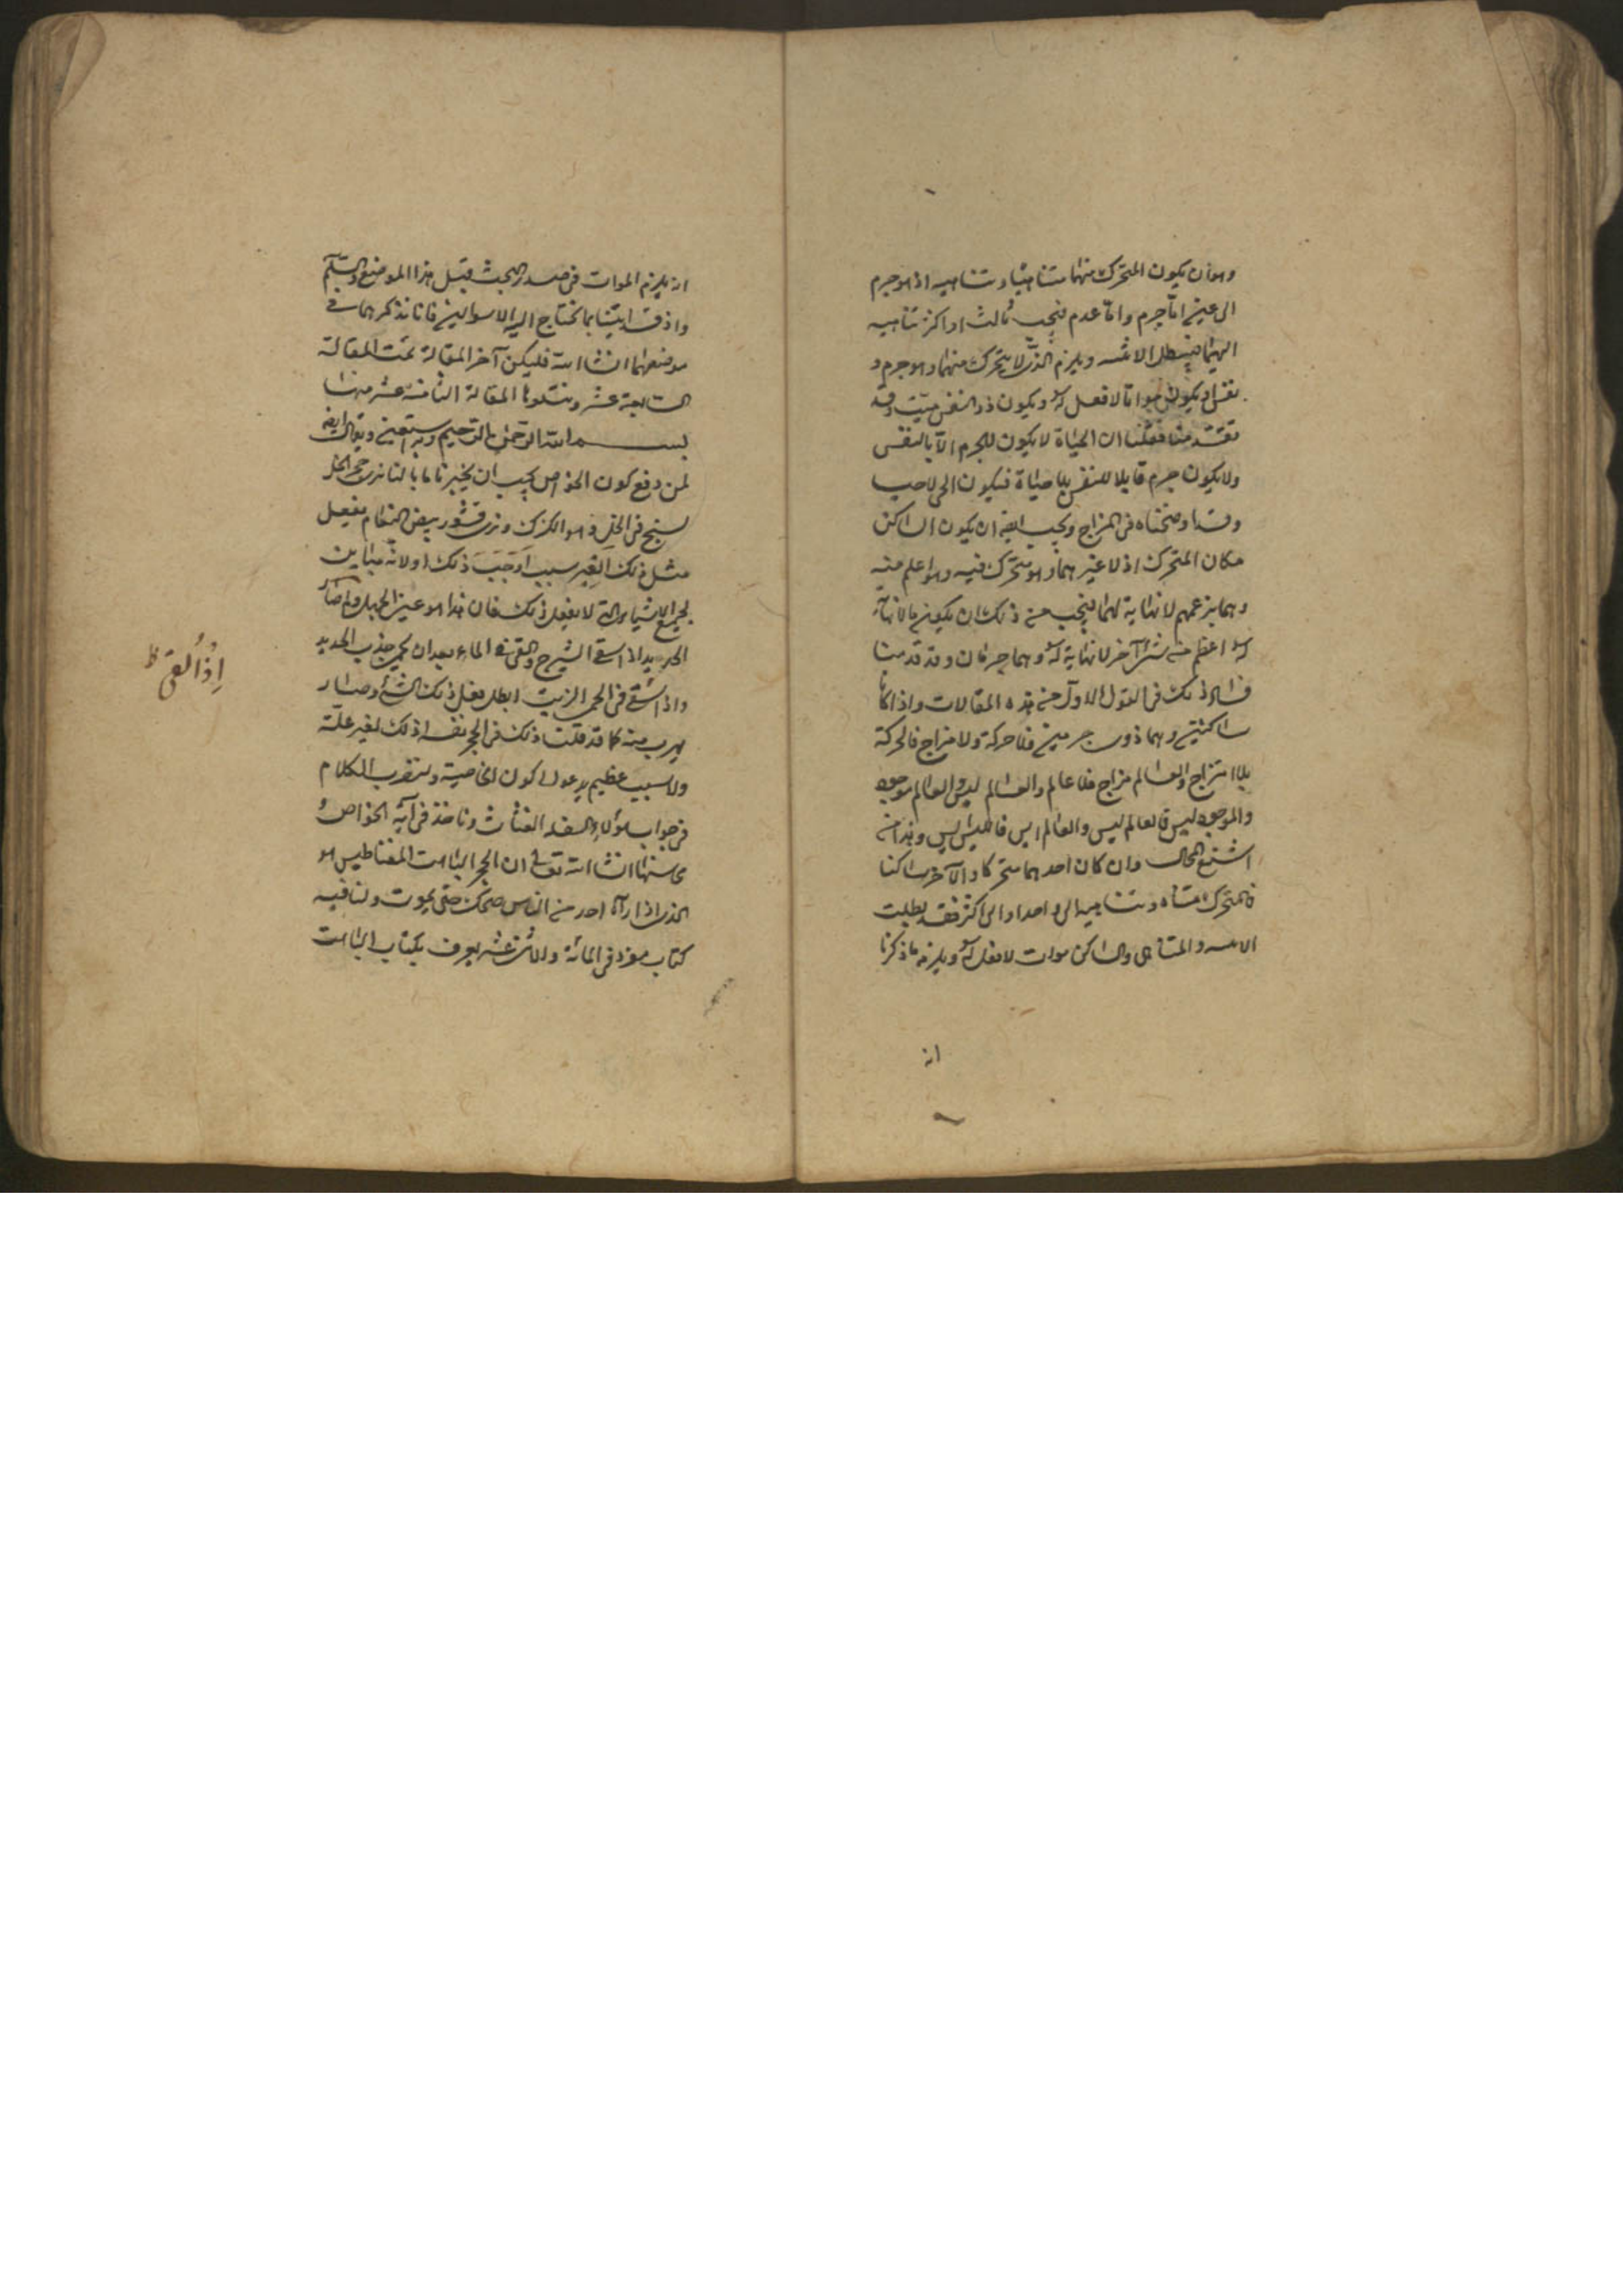 وهو ان يكون المتحرك منهما متناهيا وتناهيه اذ هو جرم
الى غير اما جرم واما عدم فيجب ثالث او اكثر تناهيه
اليهما فيبطل الاثنين ويلزم الذى لا يتحرك منهما وهو جرم و
نفس ان يكون مواتا لا فعل له ويكون ذو النفس ميت وقد
تقدمنا فقلنا ان الحياة لا يكون للجرم الا بالنفس
ولا يكون جرم قابلا للنفس بلا حياة فيكون الحى لا حيا
وقد اوضحناه فى المزاج ويجب ايضا ان يكون الساكن
مكان المتحرك اذ لا غيرهما وهو متحرك فيه وهو اعظم منه
وهما بزعمهم لا نهاية لهما فيجب من ذلك ان يكون ما لا نهاية
له اعظم من شئ آخر لا نهاية له وهما جرمان وقد قدمنا
فساد ذلك فى القول الاول من هذه المقالات واذا كانا
ساكنين وهما ذوى جرمين فلا حركة ولا مزاج فالحركة
بلا امتزاج والعالم مزاج فلا عالم والعالم ليس العالم موجود
والموجود ليس فالعالم ليس والعالم ايس فالليس ايس وهذا من
اشنع المحال وان كان احدهما متحركا والآخر ساكنا
فالمتحرك متناه وتناهيه الى واحد او الى اكثر فقد بطلت
والمتناهى والساكن موات لا فعل له ويلزمه ما ذكرنا
انه
انه يلزم الموات فى صدر البحث قبل هذا الموضع والسلم
واذ قد اتينا بما يحتاج اليه الاسوالين فانا نذكرهما فى
موضعهما انشا الله فليكن آخر المقالة تمت المقالة
السابعة عشر ويتلوها المقالة الثامنة عشر منها
بسم الله الرحمن الرحيم وبه استعين ويقال ايضا
لمن دفع كون الخواص يجب ان يخبرنا ما بالنا نرى حجر الخل
يسبح فى الخل وهو الكرك ونرى قشور بيض النعام يفعل
مثل ذلك الغير سبب اوجب ذلك او لانه مباين
لجميع الاشياء التى لا يفعل ذلك فان هذا هو عين الجهل ولم صار
الحديد اذا سقى الشيرج والقى فى الماء بعد ان يحمى جذب الحديد
واذا سقى فى الحمى الزيت ابطل فعل ذلك الشئ وصار
يهرب منه كما قد قلنا ذلك فى الحجر نفسه اذ لك لغير علة
ولا سبب عظيم يدعو الى كون الخاصية ولنضرب الكلام
فى جواب هؤلاء السفلة الغثاث وناخذ فى آية الخواص و
محاسنها انشا الله تعالى ان الحجر الباهت المغناطيس هو
الذى اذا رآه احد من الناس ضحك حتى يموت ولنا فيه
كتاب مفرد فى المائة والاثنى عشر يعرف بكتاب الباهت
اذا القى ظ